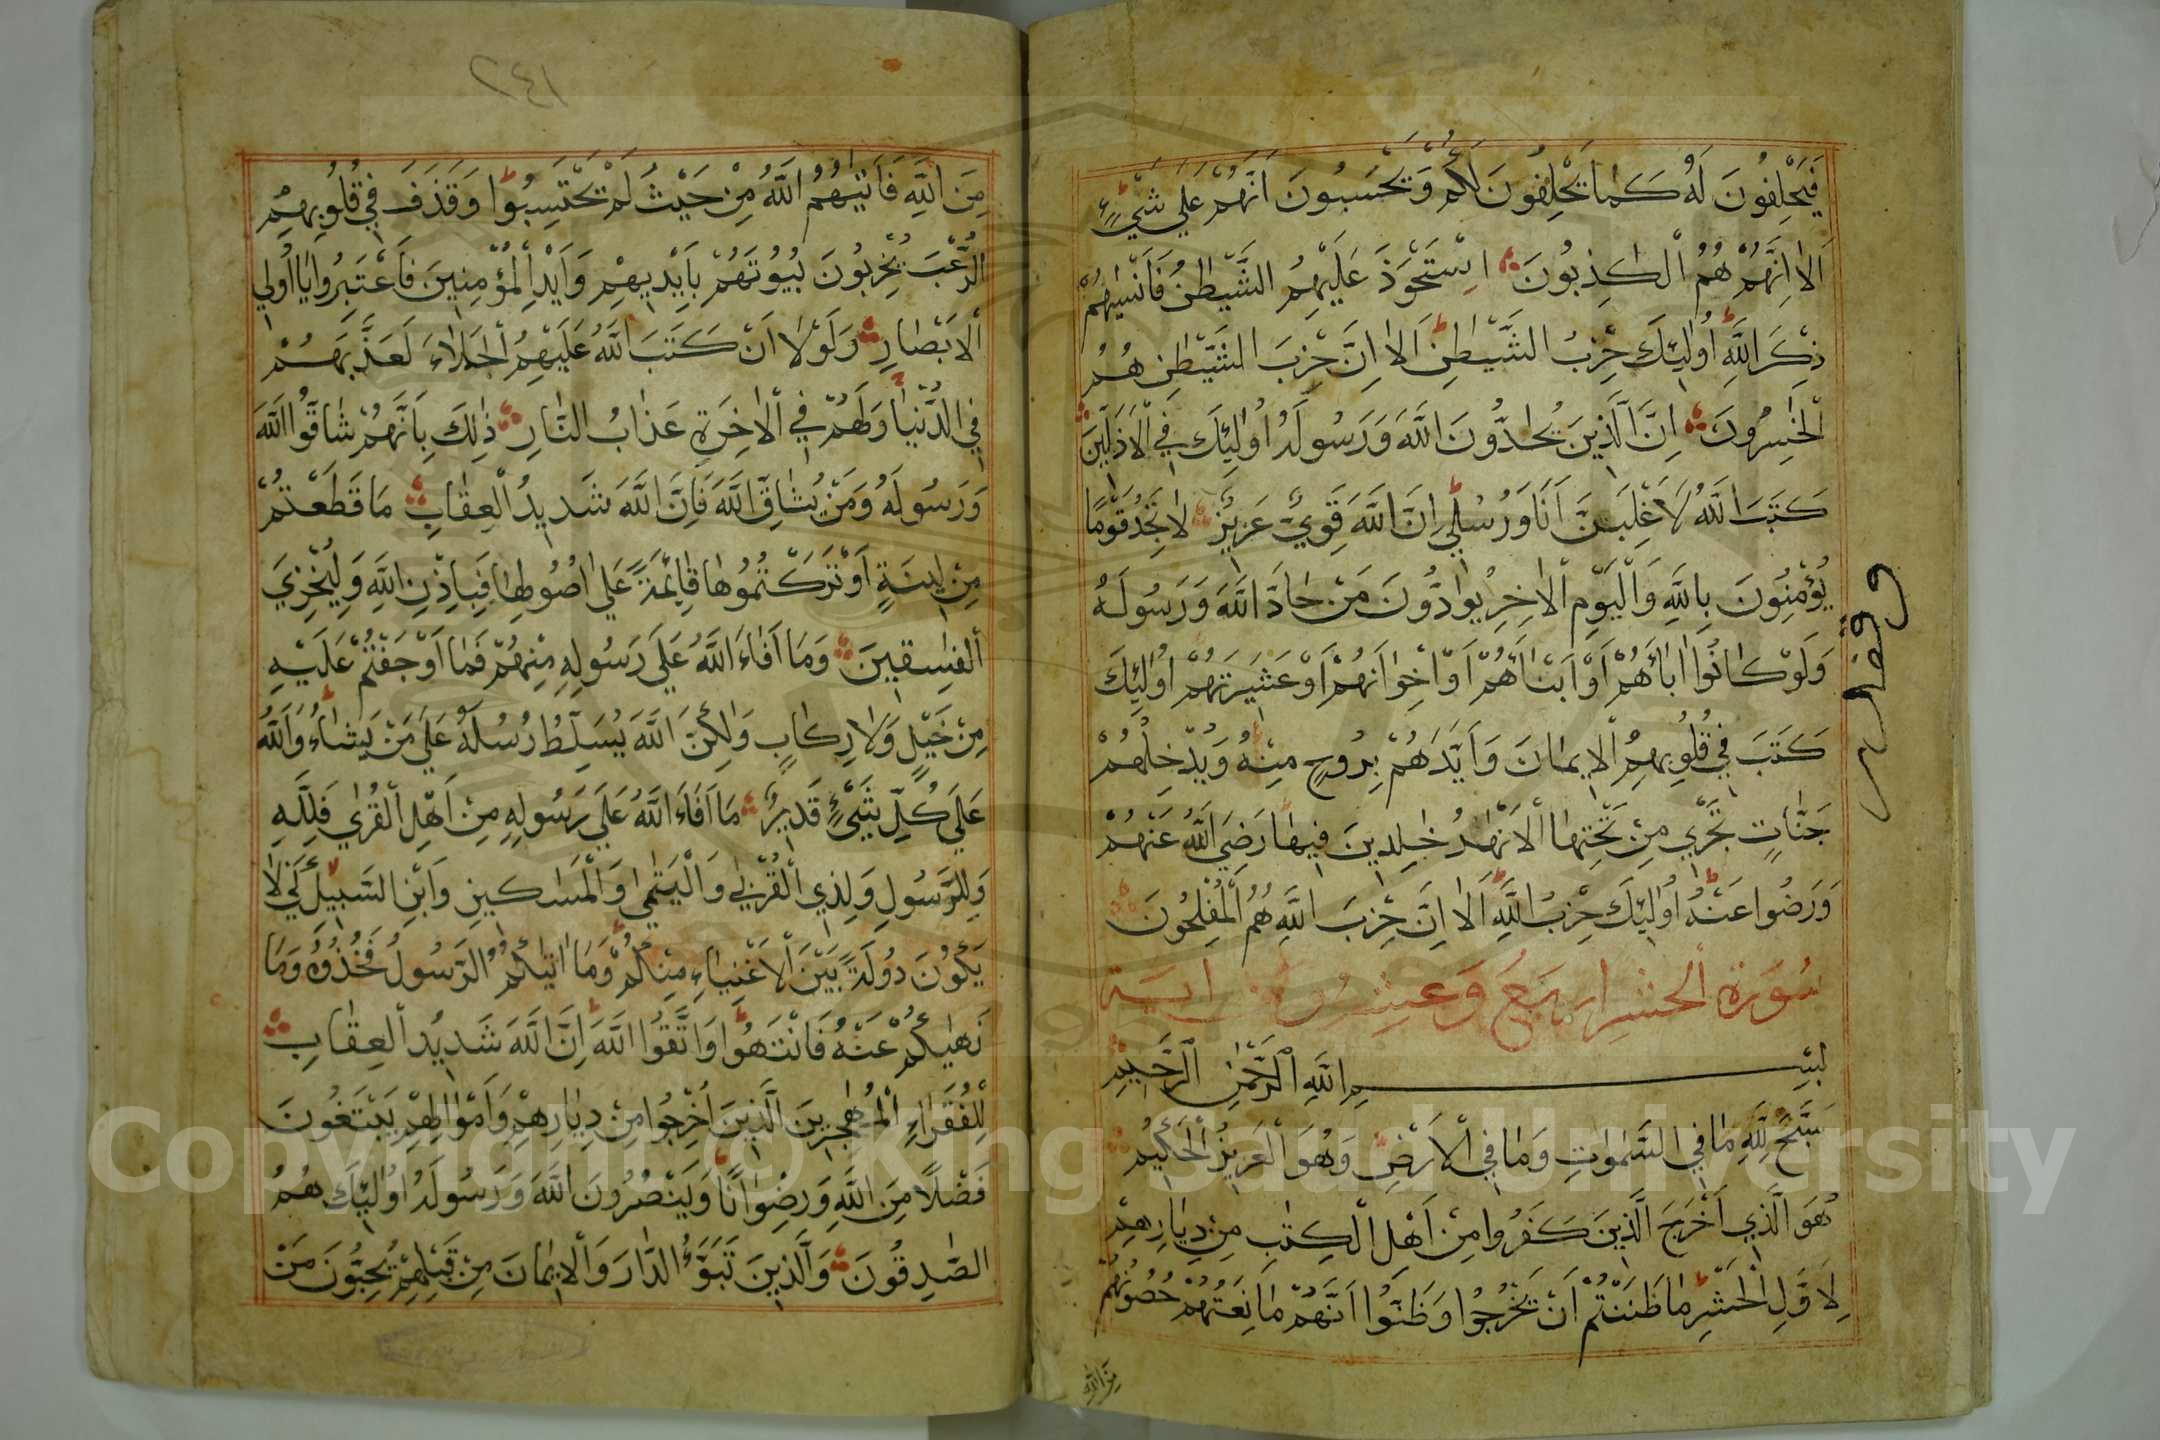 فَيَحْلِفُونَ لَهُ كَمَا يَحْلِفُونَ لَكُمْ وَيَحْسَبُونَ اَنَّهُمْ عَلٰي شَيْءٍ
اَلَا اِنَّهُمْ هُمُ الْكٰذِبُونَ اِسْتَحْوَذَ عَلَيْهِمُ الشَّيْطٰنُ فَاَنْسٰيهُمْ
ذِكْرَ اللّٰهِ اُولٰئِكَ حِزْبُ الشَّيْطٰنِ اَلَا اِنَّ حِزْبَ الشَّيْطٰنِ هُمُ
الْخٰسِرُونَ اِنَّ الَّذِينَ يُحَادُّونَ اللّٰهَ وَرَسُولَهُ اُولٰئِكَ فِي الْاَذَلِّينَ
كَتَبَ اللّٰهُ لَاَغْلِبَنَّ اَنَا وَرُسُلِي اِنَّ اللّٰهَ قَوِيٌّ عَزِيزٌ لَا تَجِدُ قَوْمًا
يُؤْمِنُونَ بِاللّٰهِ وَالْيَوْمِ الْاٰخِرِ يُوَادُّونَ مَنْ حَادَّ اللّٰهَ وَرَسُولَهُ
وَلَوْ كَانُوا اٰبَاءَهُمْ اَوْ اَبْنَاءَهُمْ اَوْ اِخْوَانَهُمْ اَوْ عَشِيرَتَهُمْ اُولٰئِكَ
كَتَبَ فِي قُلُوبِهِمُ الْاِيمَانَ وَاَيَّدَهُمْ بِرُوحٍ مِنْهُ وَيُدْخِلُهُمْ
جَنَّاتٍ تَجْرِي مِنْ تَحْتِهَا الْاَنْهَارُ خٰلِدِينَ فِيهَا رَضِيَ اللّٰهُ عَنْهُمْ
وَرَضُوا عَنْهُ اُولٰئِكَ حِزْبُ اللّٰهِ اَلَا اِنَّ حِزْبَ اللّٰهِ هُمُ الْمُفْلِحُونَ
سُورَةُ الْحَشْرِ اربع وعشرون اية
بِسْمِ اللّٰهِ الرَّحْمٰنِ الرَّحِيمِ
سَبَّحَ لِلّٰهِ مَا فِي السَّمٰوَاتِ وَمَا فِي الْاَرْضِ وَهُوَ الْعَزِيزُ الْحَكِيمُ
هُوَ الَّذِي اَخْرَجَ الَّذِينَ كَفَرُوا مِنْ اَهْلِ الْكِتٰبِ مِنْ دِيَارِهِمْ
لِاَوَّلِ الْحَشْرِ مَا ظَنَنْتُمْ اَنْ يَخْرُجُوا وَظَنُّوا اَنَّهُمْ مَانِعَتُهُمْ حُصُونُهُمْ
من الله
١٤٢
مِنَ اللّٰهِ فَاَتٰيهُمُ اللّٰهُ مِنْ حَيْثُ لَمْ يَحْتَسِبُوا وَقَذَفَ فِي قُلُوبِهِمُ
الرُّعْبَ يُخْرِبُونَ بُيُوتَهُمْ بِاَيْدِيهِمْ وَاَيْدِ الْمُؤْمِنِينَ فَاعْتَبِرُوا يَا اُولِي
الْاَبْصَارِ وَلَوْلَا اَنْ كَتَبَ اللّٰهُ عَلَيْهِمُ الْجَلَاءَ لَعَذَّبَهُمْ
فِي الدُّنْيَا وَلَهُمْ فِي الْاٰخِرَةِ عَذَابُ النَّارِ ذٰلِكَ بِاَنَّهُمْ شَاقُّوا اللّٰهَ
وَرَسُولَهُ وَمَنْ يُشَاقِّ اللّٰهَ فَاِنَّ اللّٰهَ شَدِيدُ الْعِقَابِ مَا قَطَعْتُمْ
مِنْ لِينَةٍ اَوْ تَرَكْتُمُوهَا قَائِمَةً عَلٰي اُصُولِهَا فَبِاِذْنِ اللّٰهِ وَلِيُخْزِيَ
الْفٰسِقِينَ وَمَا اَفَاءَ اللّٰهُ عَلٰي رَسُولِهِ مِنْهُمْ فَمَا اَوْجَفْتُمْ عَلَيْهِ
مِنْ خَيْلٍ وَلَا رِكَابٍ وَلٰكِنَّ اللّٰهَ يُسَلِّطُ رُسُلَهُ عَلٰي مَنْ يَشَاءُ وَاللّٰهُ
عَلٰي كُلِّ شَيْءٍ قَدِيرٌ مَا اَفَاءَ اللّٰهُ عَلٰي رَسُولِهِ مِنْ اَهْلِ الْقُرٰي فَلِلّٰهِ
وَلِلرَّسُولِ وَلِذِي الْقُرْبٰي وَالْيَتٰمٰي وَالْمَسَاكِينِ وَابْنِ السَّبِيلِ كَيْ لَا
يَكُونَ دُولَةً بَيْنَ الْاَغْنِيَاءِ مِنْكُمْ وَمَا اٰتٰيكُمُ الرَّسُولُ فَخُذُوهُ وَمَا
نَهٰيكُمْ عَنْهُ فَانْتَهُوا وَاتَّقُوا اللّٰهَ اِنَّ اللّٰهَ شَدِيدُ الْعِقَابِ
لِلْفُقَرَاءِ الْمُهٰجِرِينَ الَّذِينَ اُخْرِجُوا مِنْ دِيَارِهِمْ وَاَمْوَالِهِمْ يَبْتَغُونَ
فَضْلًا مِنَ اللّٰهِ وَرِضْوَانًا وَيَنْصُرُونَ اللّٰهَ وَرَسُولَهُ اُولٰئِكَ هُمُ
الصّٰدِقُونَ وَالَّذِينَ تَبَوَّءُ الدَّارَ وَالْاِيمَانَ مِنْ قَبْلِهِمْ يُحِبُّونَ مَنْ
Copyright © King Saud University